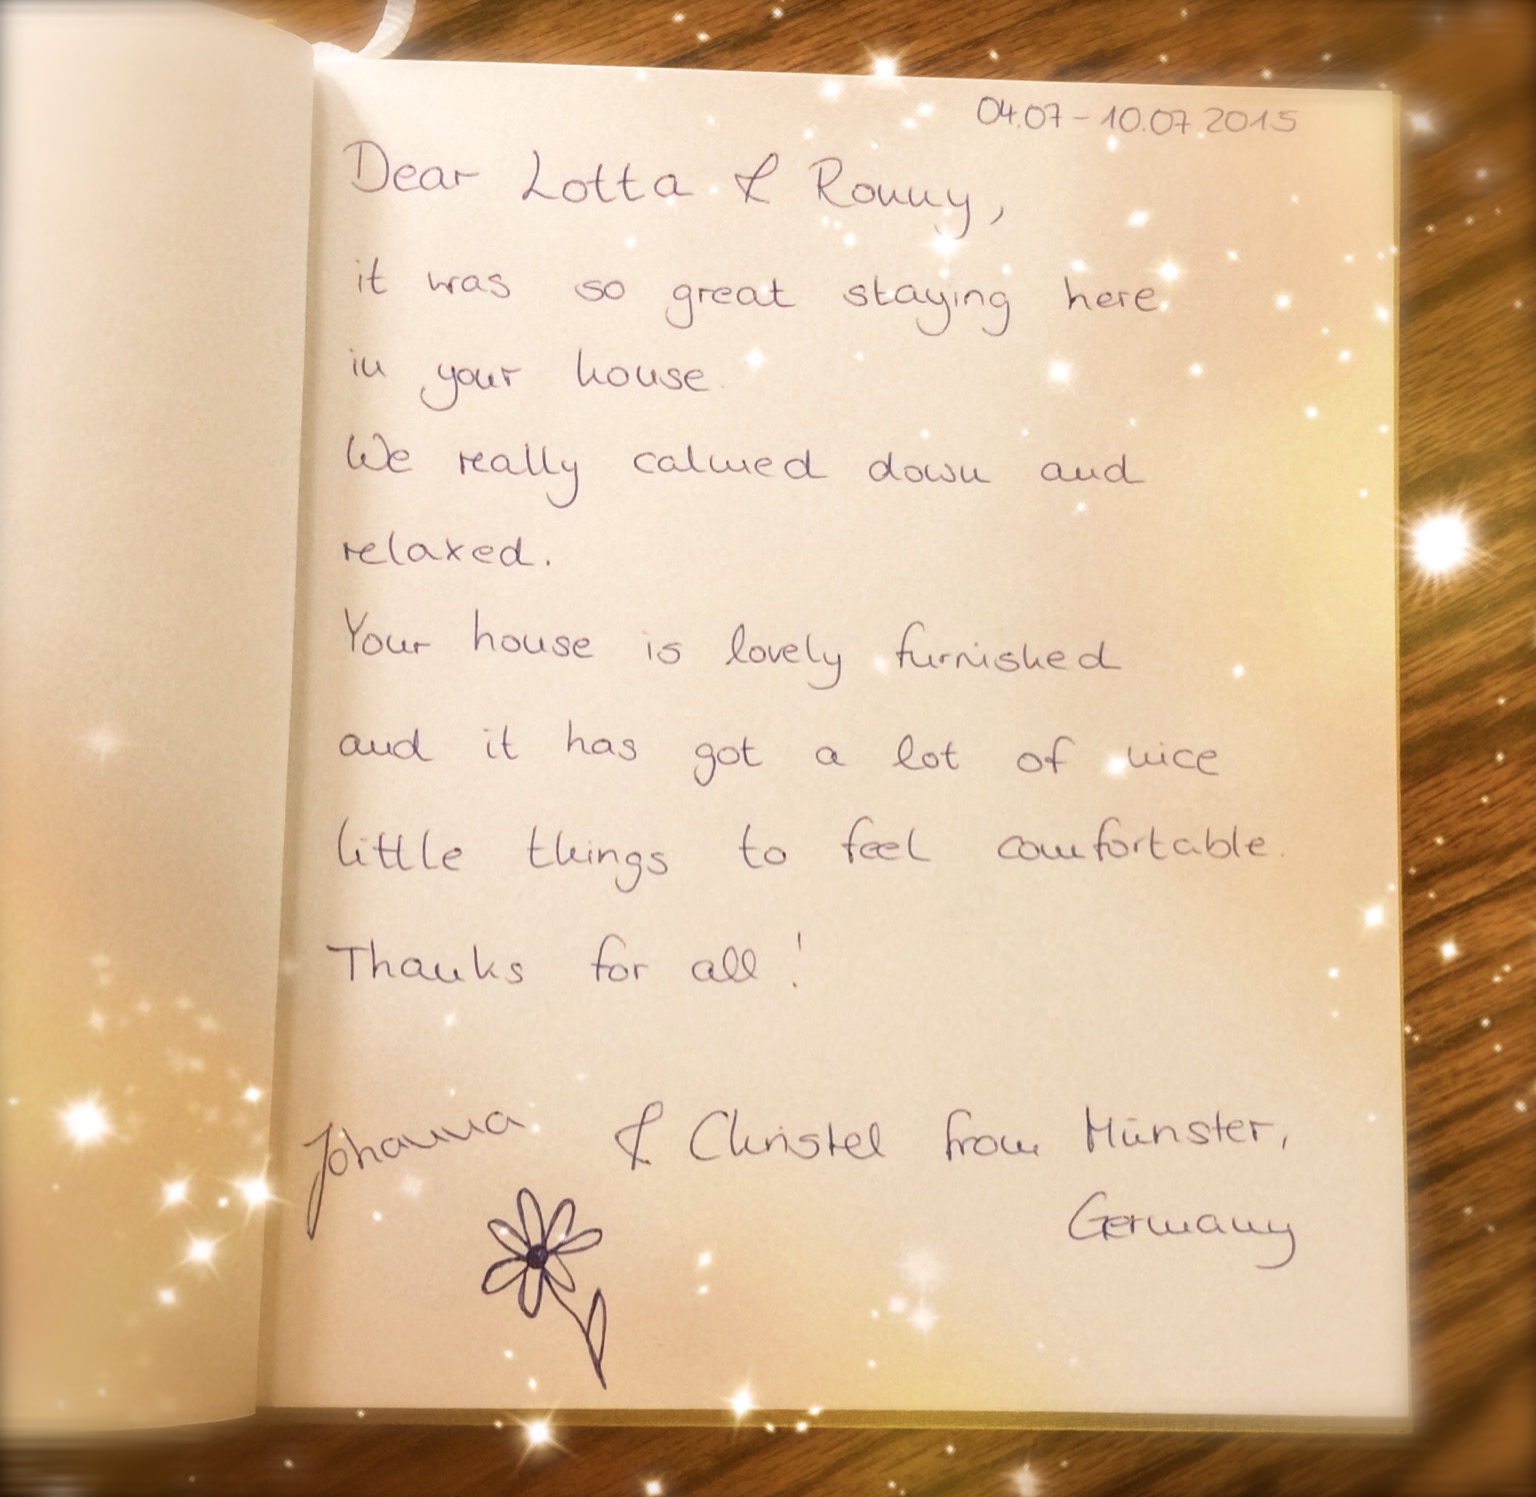 04.07 - 10.07.2015
Dear Lotta & Ronny,
it was so great staying here
in your house.
We really calmed down and
relaxed.
Your house is lovely furnished
and it has got a lot of nice
little things to feel comfortable.
Thanks for all!
Johanna & Christel from Münster,
Germany